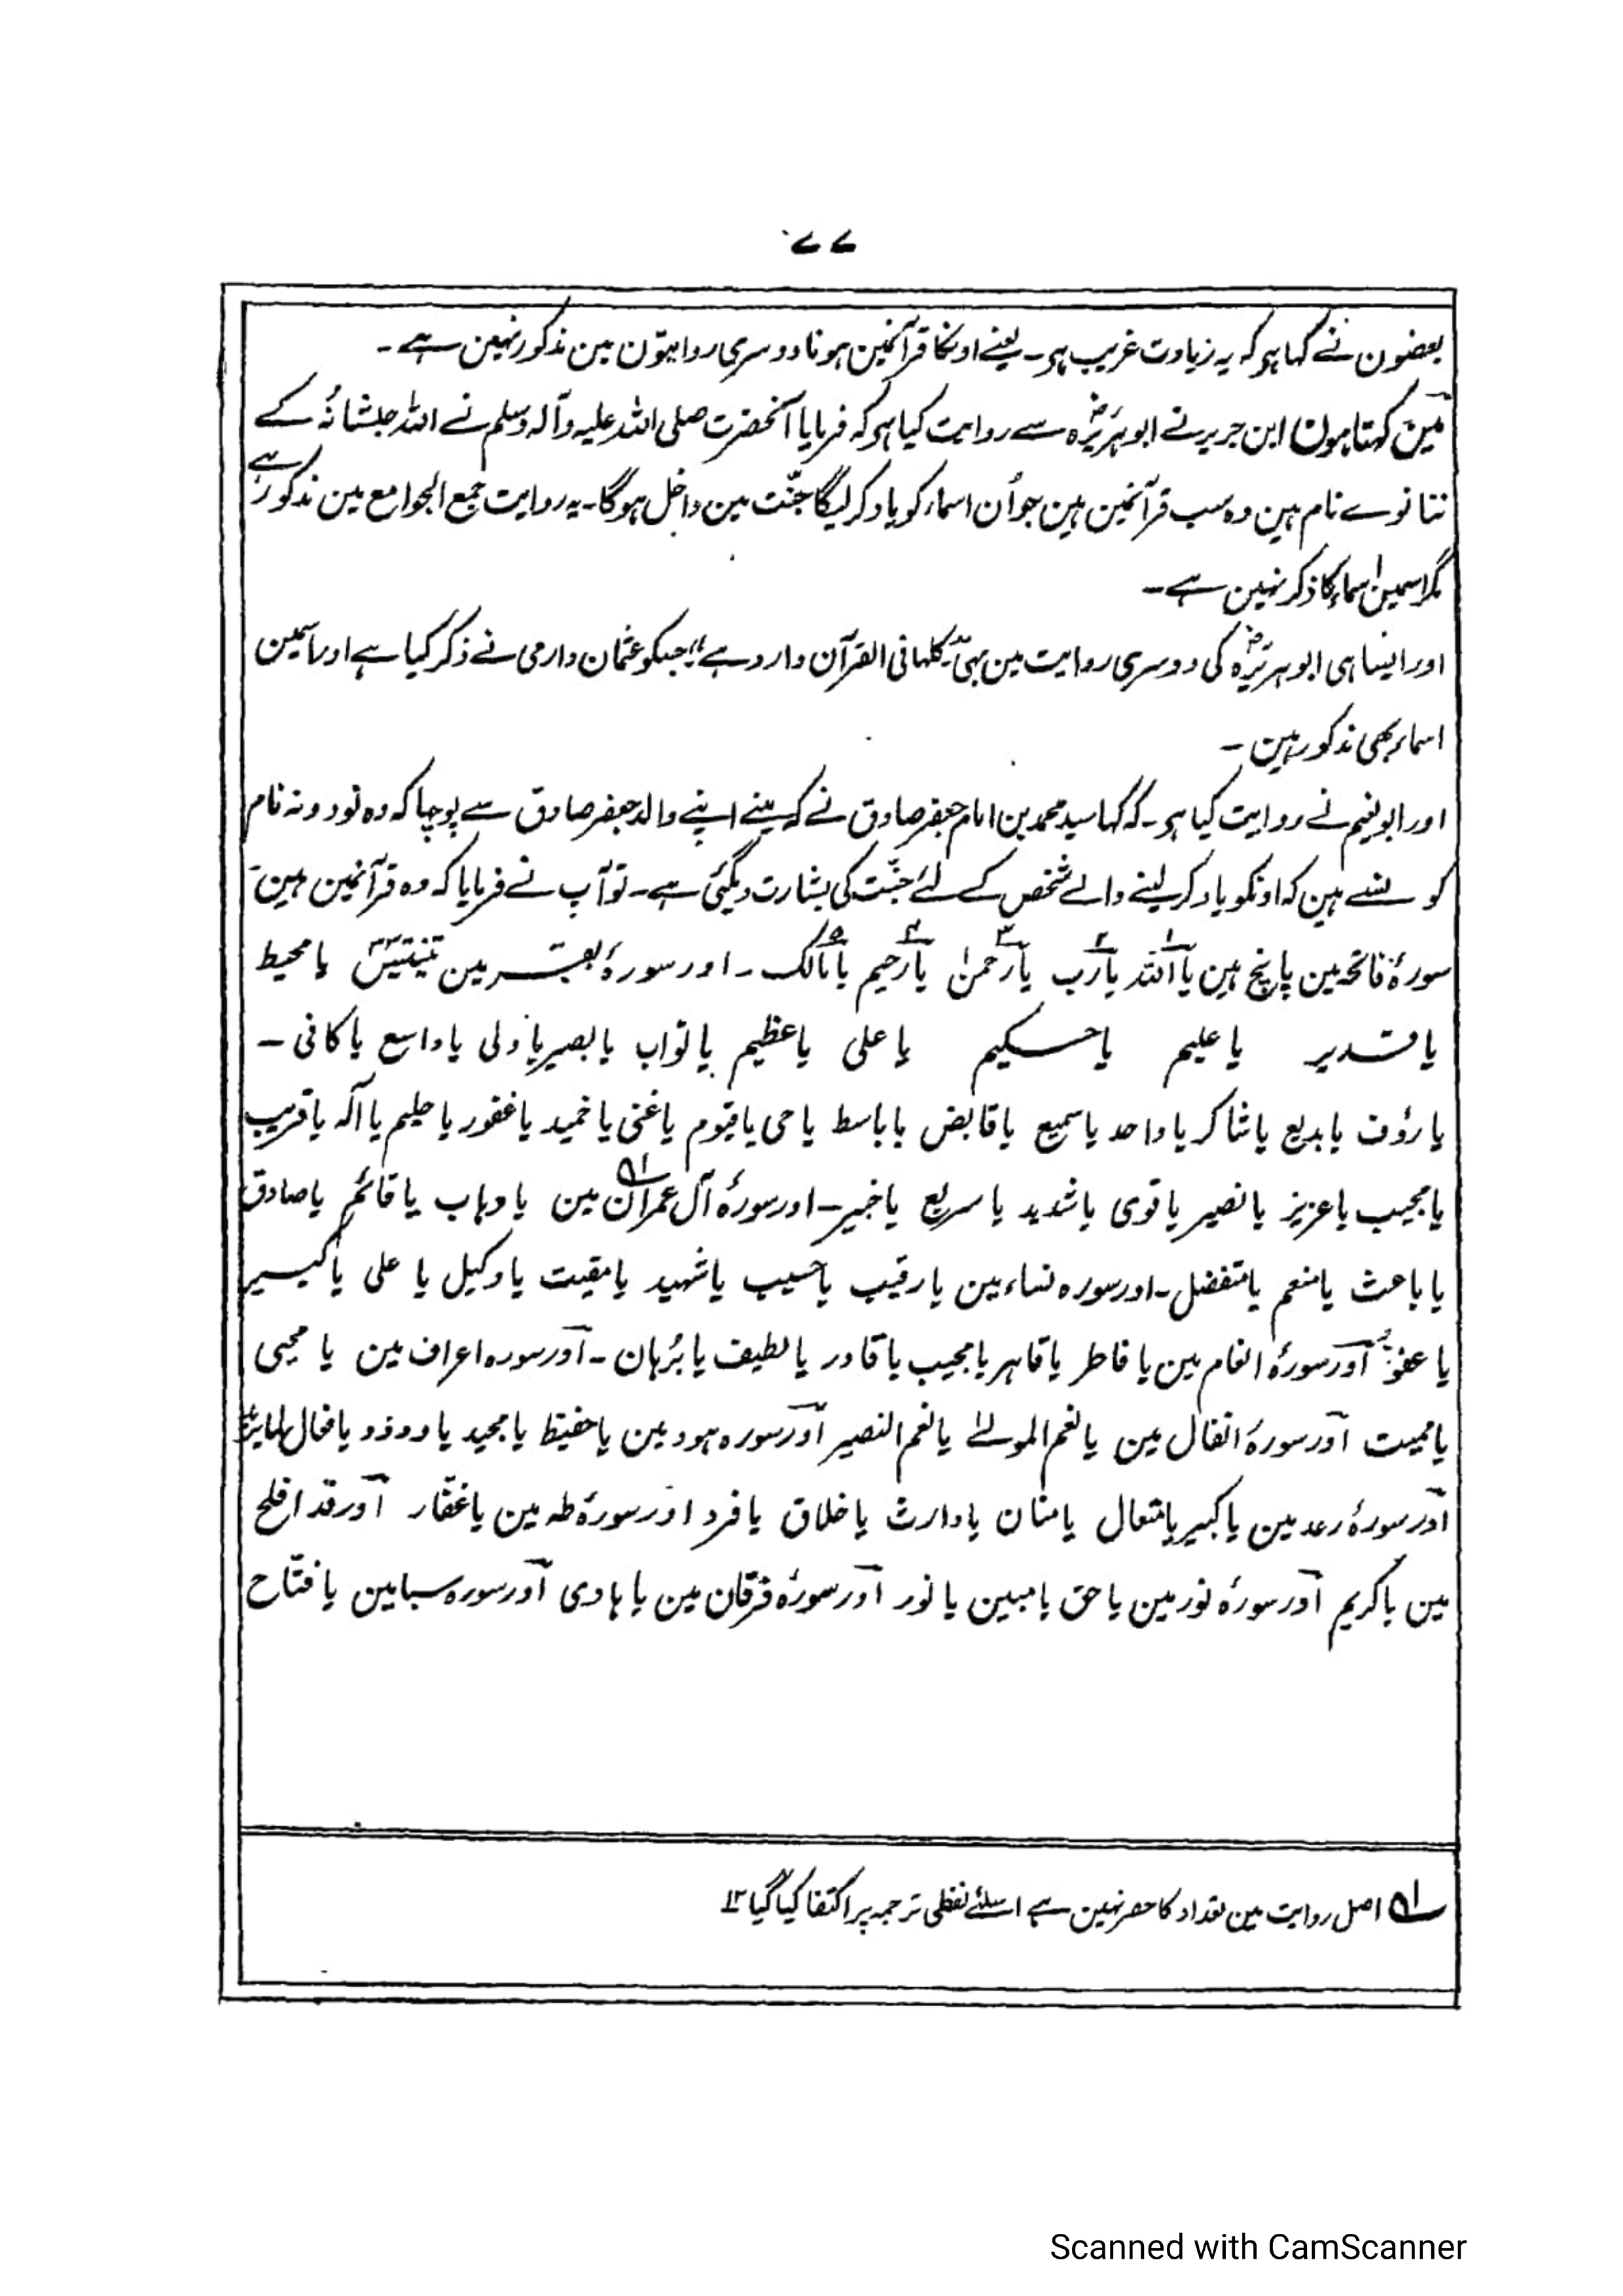 ۷۷
بعضون نے کہا ہو کہ یہ زیادت غریب ہو۔ یعنے اونکا قرآنمین ہونا دوسری روایتون مین مذکور نہین ہے۔
مین کہتا ہون ابن جریر نے ابوہریرہؓ سے روایت کیا ہو کہ فرمایا آنحضرت صلی اللہ علیہ وآلہ وسلم نے اللہ جلشانہٗ کے
ننانوے نام ہین وہ سب قرآنمین ہین جو اُن اسماء کو یاد کر لیگا جنّت مین داخل ہوگا۔ یہ روایت جمع الجوامع مین مذکور ہے
مگر اسمین اسماء کا ذکر نہین ہے۔
اور ایسا ہی ابوہریرہؓ کی دوسری روایت مین بہی کلہا فی القرآن وارد ہے جسکو عثمان دارمی نے ذکر کیا ہے اور اسمین
اسماء بھی مذکور ہین۔
اور ابونعیم نے روایت کیا ہو۔ کہ کہا سید محمد بن امام جعفر صادق نے کہ مینے اپنے والد جعفر صادق سے پوچہا کہ وہ نود و نہ نام
کونسے ہین کہ اونکو یاد کر لینے والے شخص کے لئے جنّت کی بشارت دیگئی ہے۔ تو آپ نے فرمایا کہ وہ قرآنمین ہین
سورۂ فاتحہ مین پانچ ہین یا اللہ۱ یا رب۲ یا رحمٰن۳ یا رحیم۴ یا مالک۵۔ اور سورۂ بقر مین تینتیس۳۳ یا محیط
یا قدیر یا علیم یا حکیم یا علی یا عظیم یا تواب یا بصیر یا ولی یا واسع یا کافی۔
یا رؤف یا بدیع یا شاکر یا واحد یا سمیع یا قابض یا باسط یا حی یا قیوم یا غنی یا حمید یا غفور یا حلیم یا الٰہ یا قریب
یا مجیب یا عزیز یا نصیر یا قوی یا شدید یا سریع یا خبیر۔ اور سورۂ آل عمران۱؎ مین یا وہاب یا قائم یا صادق
یا باعث یا منعم یا متفضل۔ اور سورہ نساء مین یا رقیب یا حسیب یا شہید یا مقیت یا وکیل یا علی یا کبیر
یا عفوّ اور سورۂ انعام مین یا فاطر یا قاہر یا مجیب یا قادر یا لطیف یا بُرہان۔ اور سورہ اعراف مین یا محیی
یا ممیت اور سورۂ انفال مین یا نعم المولےٰ یا نعم النصیر اور سورہ ہود مین یا حفیظ یا مجید یا ودود یا فعال لما یرید
اور سورۂ رعد مین یا کبیر یا متعال یا منان یا وارث یا خلاق یا فرد اور سورۂ طہ مین یا غفّار اور قد افلح
مین یا کریم اور سورۂ نور مین یا حق یا مبین یا نور اور سورۂ فرقان مین یا ہادی اور سورہ سبا مین یا فتّاح
۱؎ اصل روایت مین تعداد کا حصر نہین ہے اسلئے لفظی ترجمہ پر اکتفا کیا گیا ۱۲
Scanned with CamScanner